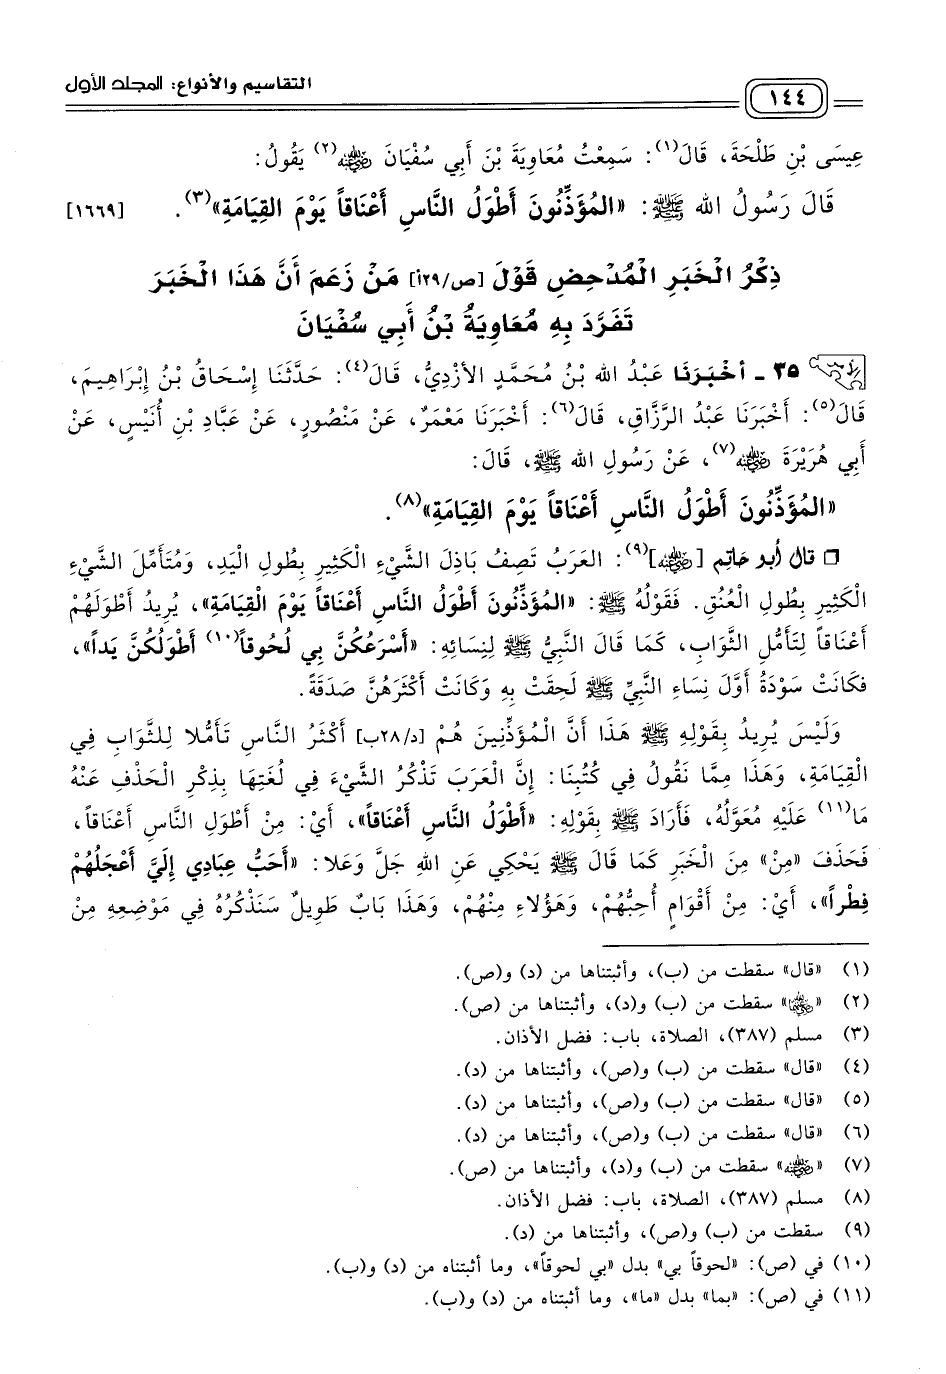 التقاسيم والأنواع: المجلد الأول
١٤٤
عِيسَى بْنِ طَلْحَةَ، قَالَ(١): سَمِعْتُ مُعَاوِيَةَ بْنَ أَبِي سُفْيَانَ ﵁(٢) يَقُولُ:
قَالَ رَسُولُ الله ﷺ: «المُؤَذِّنُونَ أَطْوَلُ النَّاسِ أَعْنَاقاً يَوْمَ القِيَامَةِ»(٣). [١٦٦٩]
ذِكْرُ الْخَبَرِ الْمُدْحِضِ قَوْلَ [ص/٢٩أ] مَنْ زَعَمَ أَنَّ هَذَا الْخَبَرَ
تَفَرَّدَ بِهِ مُعَاوِيَةُ بْنُ أَبِي سُفْيَانَ
٣٥ - أخْبَرَنَا عَبْدُ الله بْنُ مُحَمَّدٍ الأزْدِيُّ، قَالَ(٤): حَدَّثَنَا إِسْحَاقُ بْنُ إِبْرَاهِيمَ،
قَالَ(٥): أَخْبَرَنَا عَبْدُ الرَّزَّاقِ، قَالَ(٦): أَخْبَرَنَا مَعْمَرٌ، عَنْ مَنْصُورٍ، عَنْ عَبَّادِ بْنِ أُنَيْسٍ، عَنْ
أَبِي هُرَيْرَةَ ﵁(٧)، عَنْ رَسُولِ الله ﷺ، قَالَ:
«المُؤَذِّنُونَ أَطْوَلُ النَّاسِ أَعْنَاقاً يَوْمَ القِيَامَةِ»(٨).
❑ قال أبو حاتم [﵁](٩): العَرَبُ تَصِفُ بَاذِلَ الشَّيْءِ الْكَثِيرِ بِطُولِ الْيَدِ، وَمُتَأَمِّلَ الشَّيْءِ
الْكَثِيرِ بِطُولِ الْعُنُقِ. فَقَوْلُهُ ﷺ: «المُؤَذِّنُونَ أَطْوَلُ النَّاسِ أَعْنَاقاً يَوْمَ الْقِيَامَةِ»، يُرِيدُ أَطْوَلَهُمْ
أَعْنَاقاً لِتَأَمُّلِ الثَّوَابِ، كَمَا قَالَ النَّبِيُّ ﷺ لِنِسَائِهِ: «أَسْرَعُكُنَّ بِي لُحُوقاً(١٠) أَطْوَلُكُنَّ يَداً»،
فَكَانَتْ سَوْدَةُ أَوَّلَ نِسَاءِ النَّبِيِّ ﷺ لَحِقَتْ بِهِ وَكَانَتْ أَكْثَرَهُنَّ صَدَقَةً.
وَلَيْسَ يُرِيدُ بِقَوْلِهِ ﷺ هَذَا أَنَّ الْمُؤَذِّنِينَ هُمْ [د/٢٨ب] أَكْثَرُ النَّاسِ تَأَمُّلا لِلثَّوَابِ فِي
الْقِيَامَةِ، وَهَذَا مِمَّا نَقُولُ فِي كُتُبِنَا: إِنَّ الْعَرَبَ تَذْكُرُ الشَّيْءَ فِي لُغَتِهَا بِذِكْرِ الْحَذْفِ عَنْهُ
مَا(١١) عَلَيْهِ مُعَوَّلُهُ، فَأَرَادَ ﷺ بِقَوْلِهِ: «أَطْوَلُ النَّاسِ أَعْنَاقاً»، أَيْ: مِنْ أَطْوَلِ النَّاسِ أَعْنَاقاً،
فَحَذَفَ «مِنْ» مِنَ الْخَبَرِ كَمَا قَالَ ﷺ يَحْكِي عَنِ اللهِ جَلَّ وَعَلا: «أَحَبُّ عِبَادِي إِلَيَّ أَعْجَلُهُمْ
فِطْراً»، أَيْ: مِنْ أَقْوَامٍ أُحِبُّهُمْ، وَهَؤُلاءِ مِنْهُمْ، وَهَذَا بَابٌ طَوِيلٌ سَنَذْكُرُهُ فِي مَوْضِعِهِ مِنْ
(١) «قال» سقطت من (ب)، وأثبتناها من (د) و(ص).
(٢) «﵁» سقطت من (ب) و(د)، وأثبتناها من (ص).
(٣) مسلم (٣٨٧)، الصلاة، باب: فضل الأذان.
(٤) «قال» سقطت من (ب) و(ص)، وأثبتناها من (د).
(٥) «قال» سقطت من (ب) و(ص)، وأثبتناها من (د).
(٦) «قال» سقطت من (ب) و(ص)، وأثبتناها من (د).
(٧) «﵁» سقطت من (ب) و(د)، وأثبتناها من (ص).
(٨) مسلم (٣٨٧)، الصلاة، باب: فضل الأذان.
(٩) سقطت من (ب) و(ص)، وأثبتناها من (د).
(١٠) في (ص): «لحوقاً بي» بدل «بي لحوقاً»، وما أثبتناه من (د) و(ب).
(١١) في (ص): «بما» بدل «ما»، وما أثبتناه من (د) و(ب).